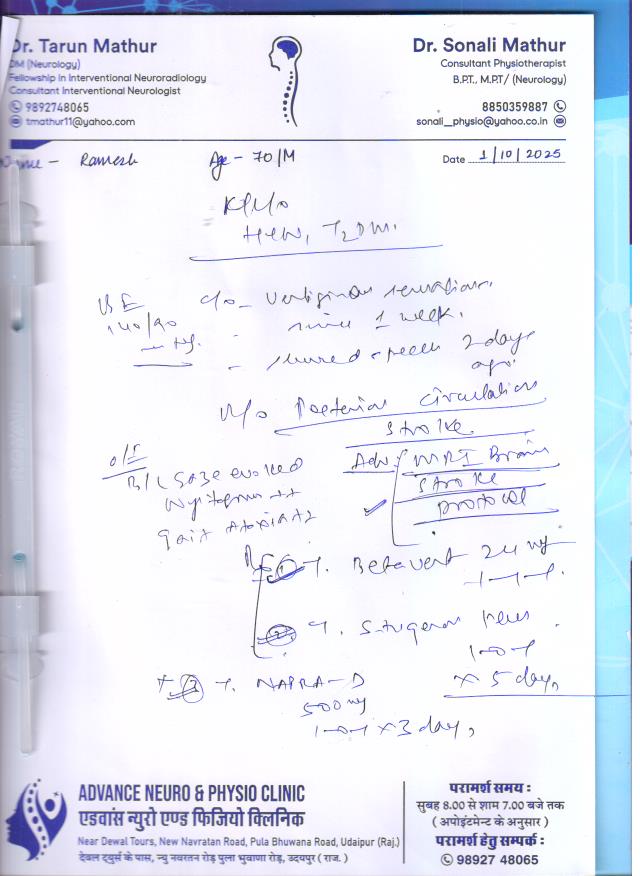 Dr. Tarun Mathur
DM (Neurology)
Fellowship in Interventional Neuroradiology
Consultant Interventional Neurologist
9892748065
tmathur11@yahoo.com
Dr. Sonali Mathur
Consultant Physiotherapist
B.P.T., M.P.T/ (Neurology)
8850359887
sonali_physio@yahoo.co.in
Name - Ramesh
Age - 70/M
Date 1/10/2025
K/H/o
HTN, T2DM.
140/90
c/o - Vertiginous sensations
since 1 week.
- slurred speech 2 days
ago.
Posterior circulation
stroke
O/E
B/L Gaze evoked
Nystagmus ++
Gait Ataxia +2
Adv MRI Brain
stroke
protocol
Rx (1) T. Betavert 24 mg
1-1-1.
(2) T. Stugeron Plus
1-0-1
x 5 days
+ (3) T. NAPRA-D
500 mg
1-0-1 x 3 days
ADVANCE NEURO & PHYSIO CLINIC
एडवांस न्युरो एण्ड फिजियो क्लिनिक
Near Dewal Tours, New Navratan Road, Pula Bhuwana Road, Udaipur (Raj.)
देवल टूर्स के पास, न्यु नवरतन रोड़ पुला भुवाणा रोड़, उदयपुर ( राज. )
परामर्श समय :
सुबह 8.00 से शाम 7.00 बजे तक
( अपोइंटमेन्ट के अनुसार )
परामर्श हेतु सम्पर्क :
98927 48065